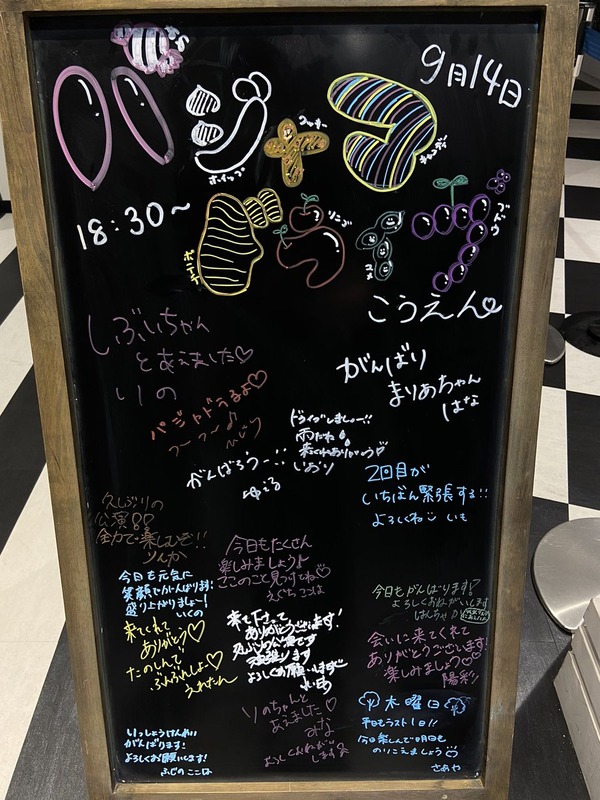 9月14日
パジャマ
キャンディ
ドライブ
18:30〜
りんご
マメ
ブドウ
こうえん
しぶいちゃん
とあえました♡
りの
がんばり
まりあちゃん
はな
パジャドラるよ♡
つ〜つ〜♪
ひじり
ドライブしましょー!!
雨だね
来てくれありがとう♡
いおり
がんばろう〜!!
ゆいる
2回目が
いちばん緊張する!!
よろしくね いも
久しぶりの
公演
全力で楽しむぞ!!
りんか
今日もたくさん
楽しみましょう♪
ここのこと見つけてね♡
今日も元気に
笑顔でがんばります!
盛り上がりましょー!
いくの
来てくれて
ありがとう♡
たのしんで
えれたん
来て下さって
ありがとうございます!
久しぶりの公演です
頑張ります
よろしくお願いします
今日もがんばります♡
よろしくおねがいします
はんちゃ
会いに来てくれて
ありがとうございます!
楽しみましょう♡♡
陽彩
りのちゃんと
あえました♡
みな
よろしくおねがい
します
木曜日
平日もラスト1日!!
今日楽しんで明日も
のりこえましょう
さあや
いっしょうけんめい
がんばります!
よろしくお願いします!
ふじの ここは